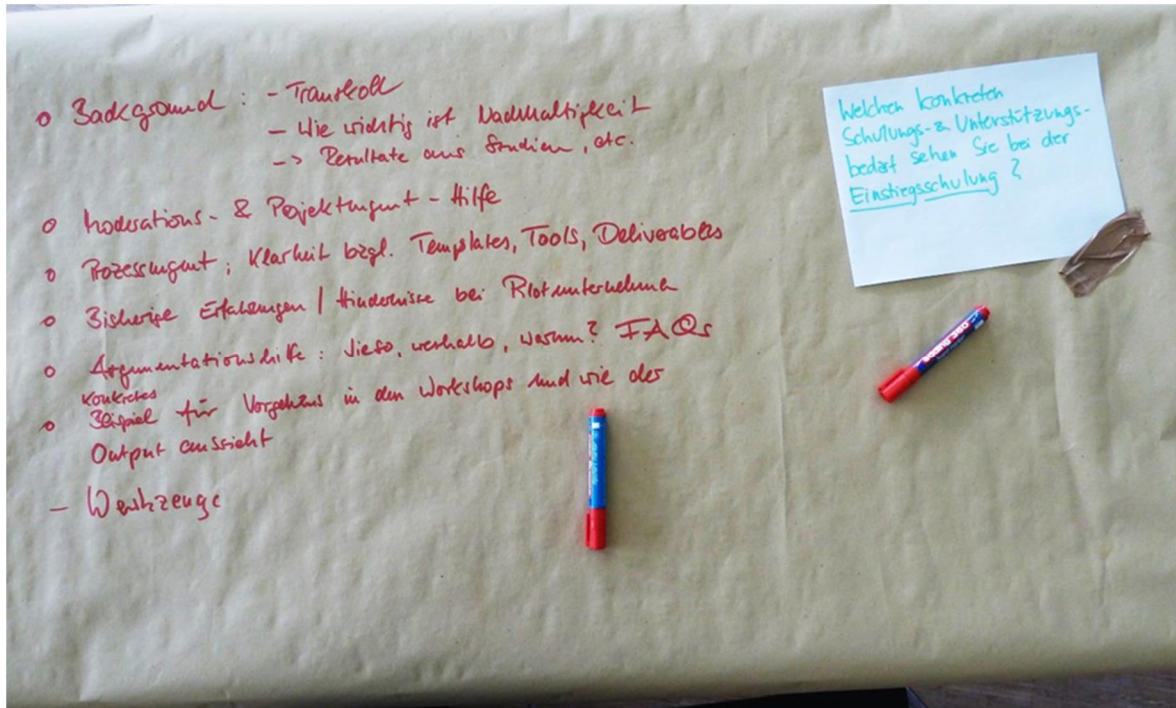 o Background : - Transkoll
- Wie wichtig ist Nachhaltigkeit
-> Resultate aus Studien, etc.
o Moderations- & Projektmgmt - Hilfe
o Prozessmgmt, Klarheit bzgl. Templates, Tools, Deliverables
o Bisherige Erfahrungen / Hindernisse bei Pilotunternehmen
o Argumentationshilfe : Wieso, weshalb, warum? FAQs
Konkretes
o Beispiel für Vorgehens in den Workshops und wie der
Output aussieht
- Werkzeuge
Welchen konkreten
Schulungs- & Unterstützungs-
bedarf sehen Sie bei der
Einstiegsschulung ?